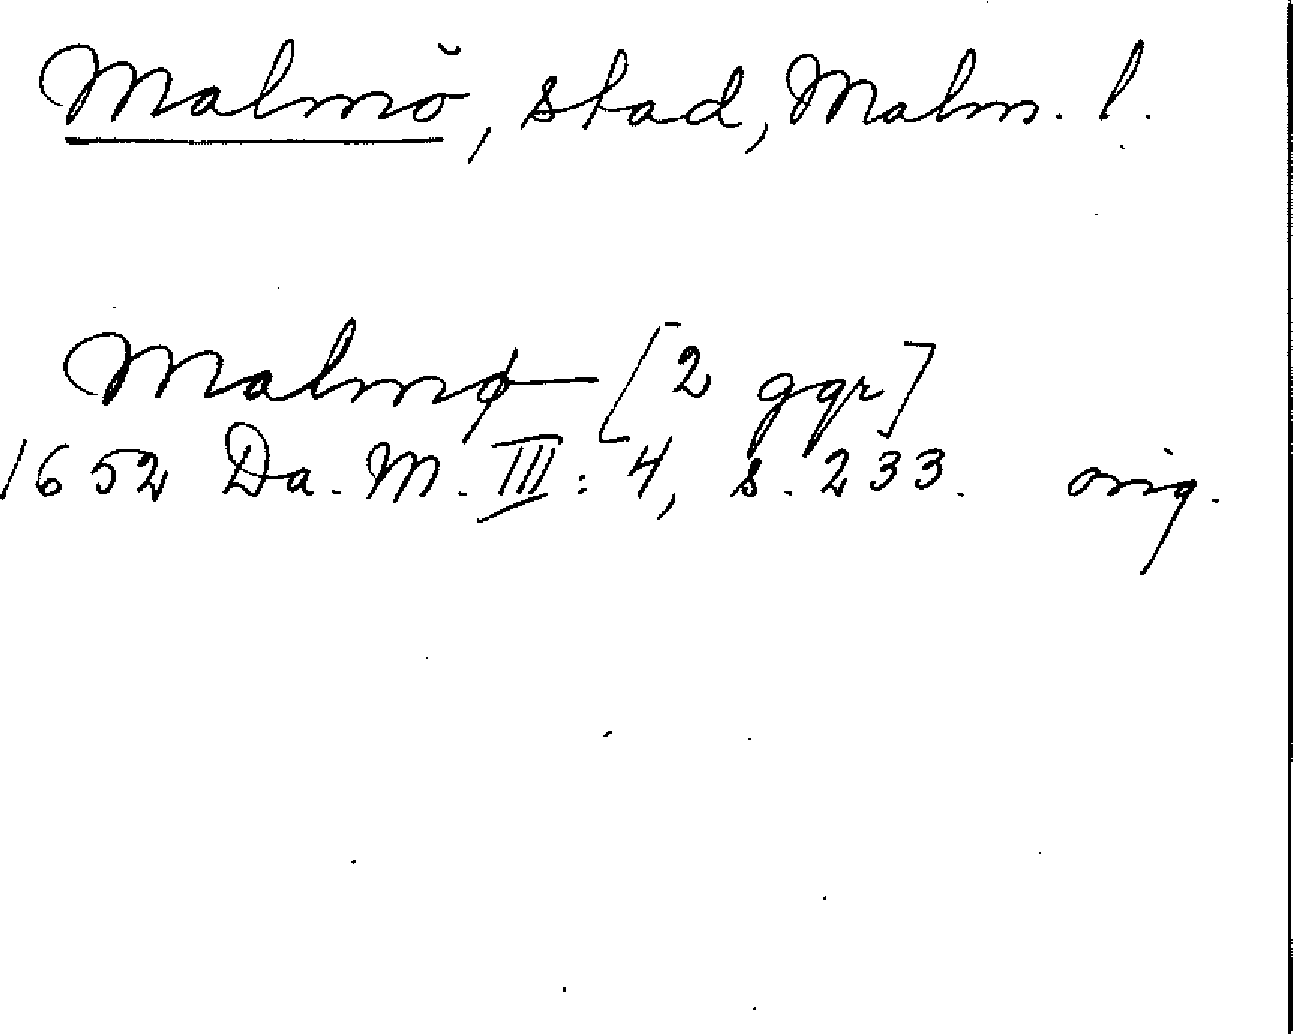 Malmö, stad, Malm. l.
Malmø [2 ggr]
1652 Da. M. III: 4, s. 233. orig.